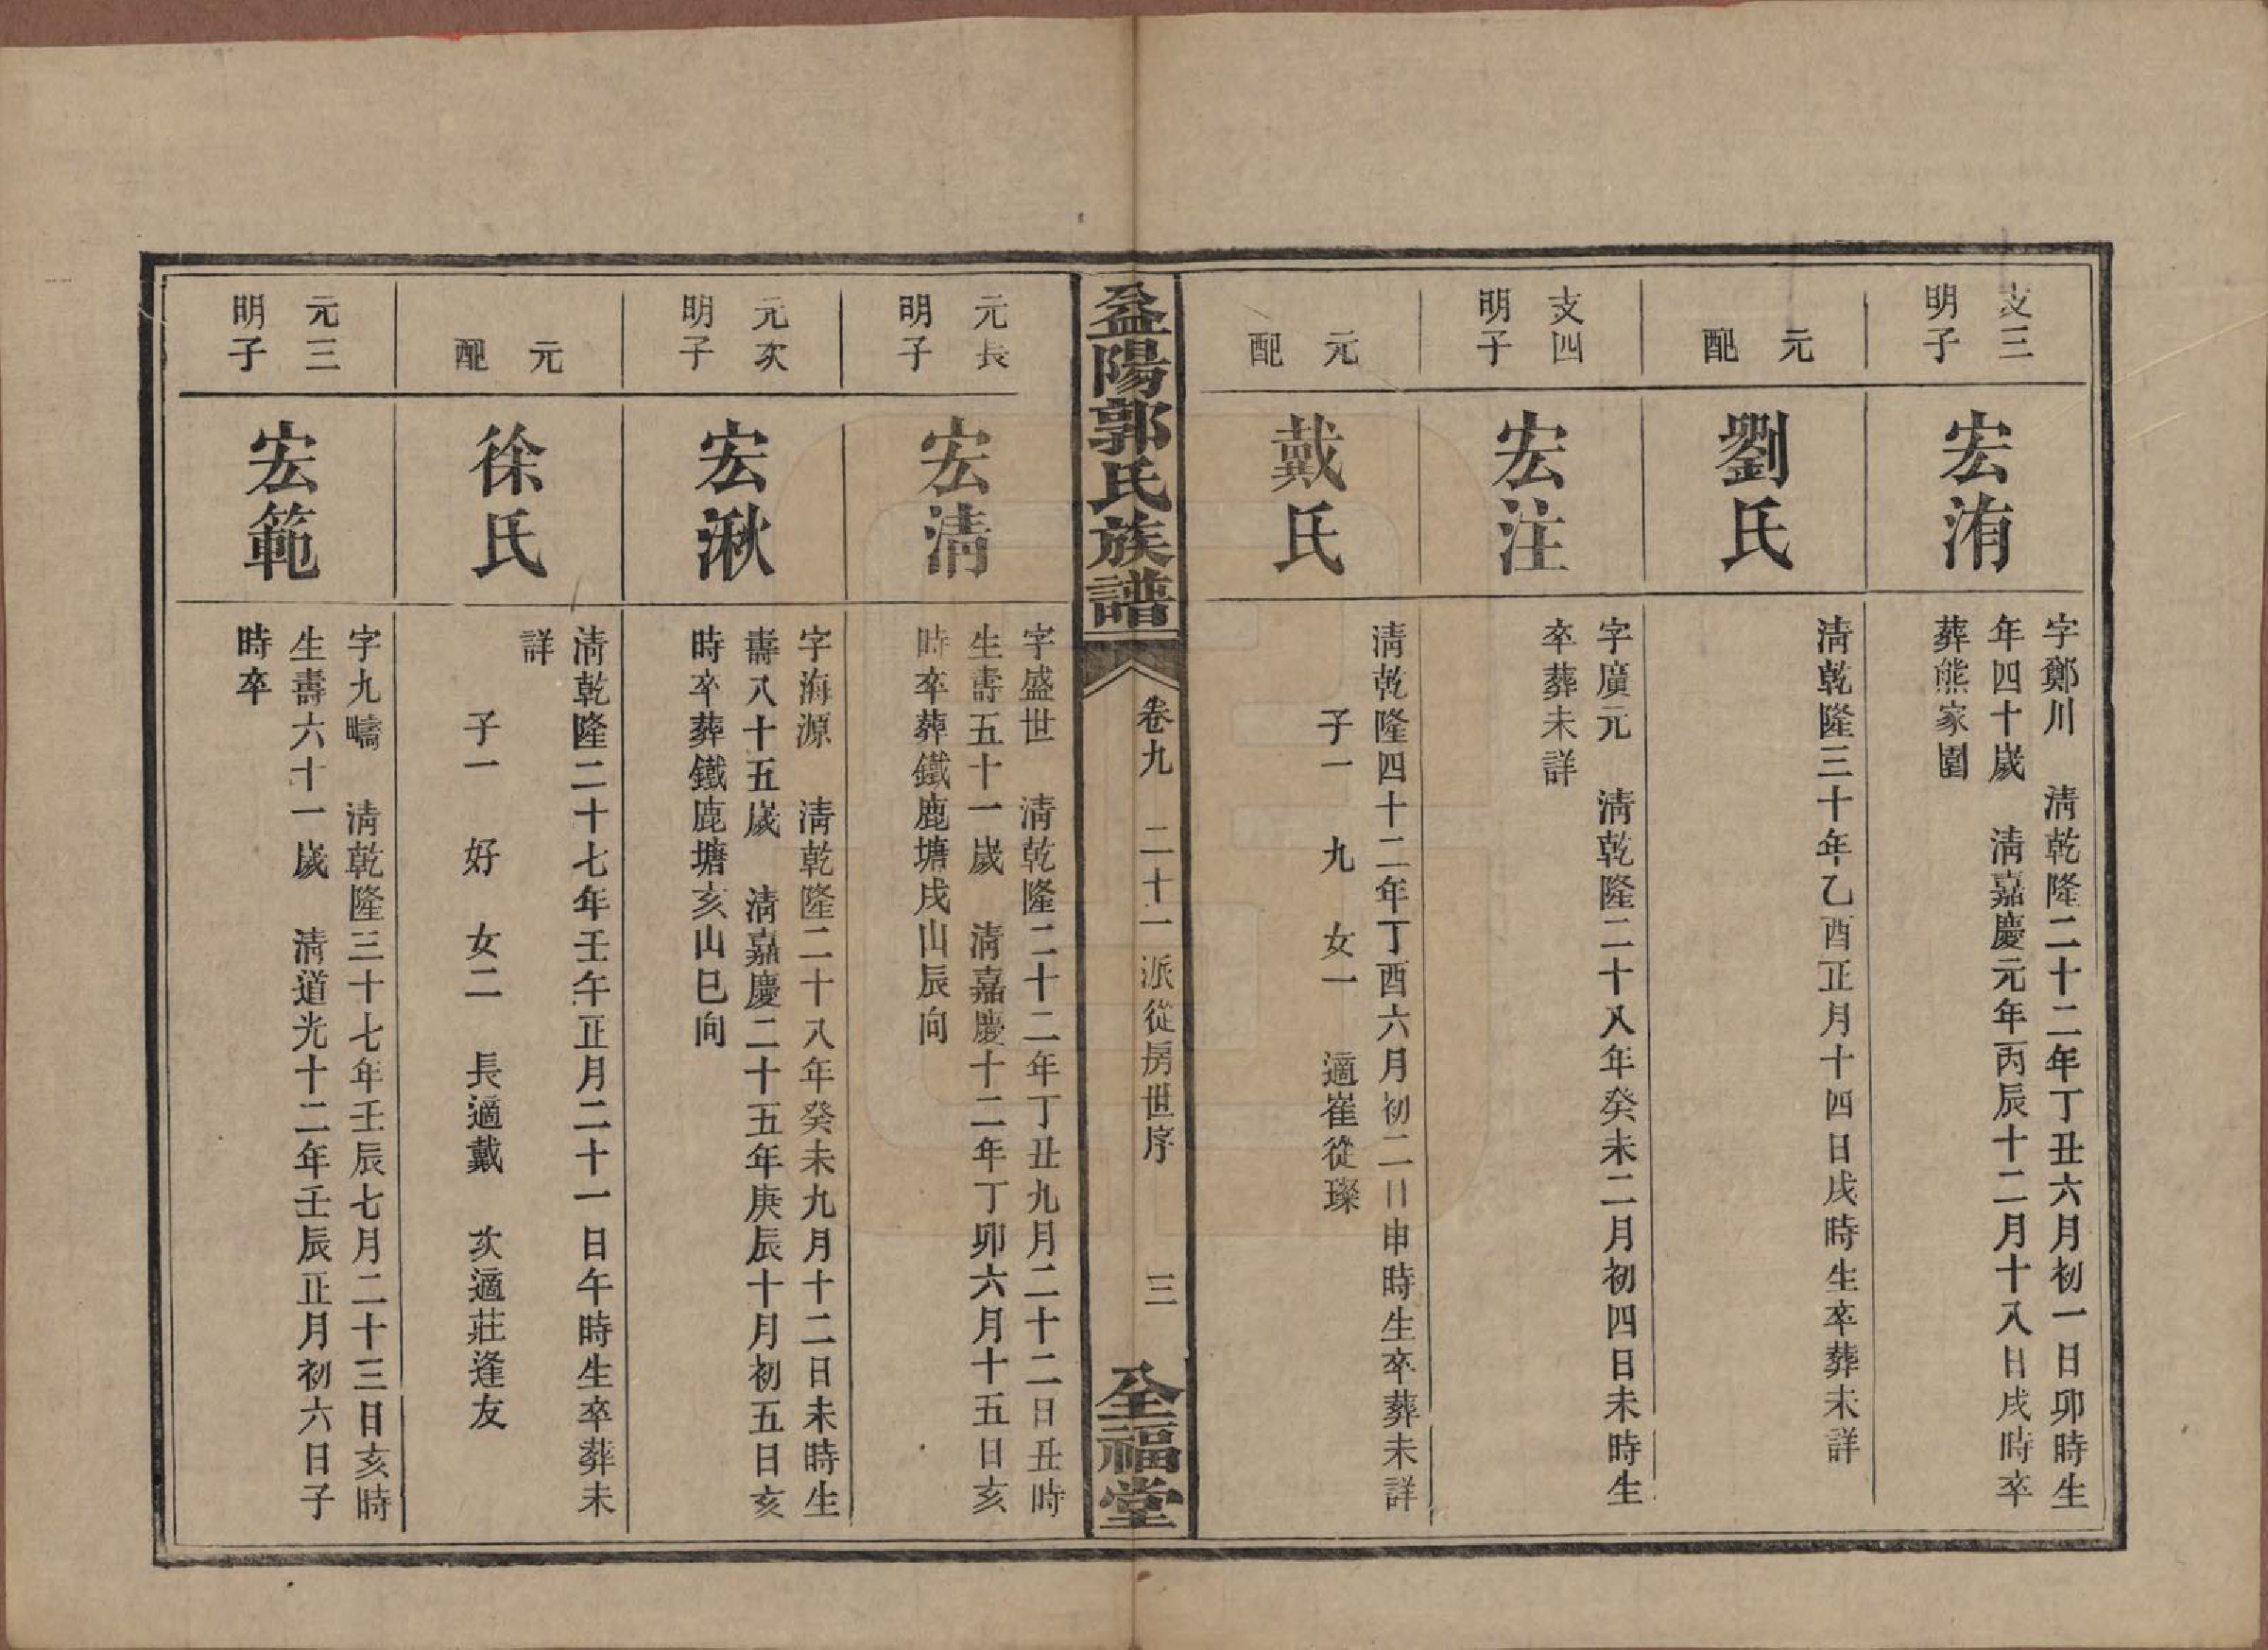 支三
明子
宏洧
字鄭川　清乾隆二十二年丁丑六月初一日卯時生
年四十歲　清嘉慶元年丙辰十二月十八日戌時卒
葬熊家園
元
配
劉氏
清乾隆三十年乙酉正月十四日戌時生卒葬未詳
支四
明子
宏注
字廣元　清乾隆二十八年癸未二月初四日未時生
卒葬未詳
元
配
戴氏
清乾隆四十二年丁酉六月初二日申時生卒葬未詳
子一　九　女一　適崔從璨
益陽郭氏族譜
卷九　二十一派從房世序　三
全福堂
元長
明子
宏清
字盛世　清乾隆二十二年丁丑九月二十二日丑時
生壽五十一歲　清嘉慶十二年丁卯六月十五日亥
時卒葬鐵鹿塘戌山辰向
元次
明子
宏湫
字海源　清乾隆二十八年癸未九月十二日未時生
壽八十五歲　清嘉慶二十五年庚辰十月初五日亥
時卒葬鐵鹿塘亥山巳向
元
配
徐氏
清乾隆二十七年壬午正月二十一日午時生卒葬未
詳
子一　好　女二　長適戴　次適莊逢友
元三
明子
宏範
字九疇　清乾隆三十七年壬辰七月二十三日亥時
生壽六十一歲　清道光十二年壬辰正月初六日子
時卒